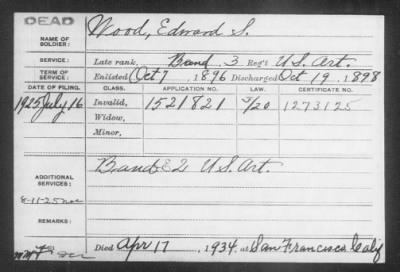 DEAD
NAME OF SOLDIER: Wood, Edward S.
SERVICE: Late rank, Band 3 Reg't U.S. Art.
TERM OF SERVICE: Enlisted Oct 7, 1896 Discharged Oct 19, 1898
DATE OF FILING. CLASS. APPLICATION NO. LAW. CERTIFICATE NO.
1925 July 16 Invalid, 1521821 5/20 1273125
Widow,
Minor,
ADDITIONAL SERVICES: Band & 2 U.S. Art.
8-11-25
REMARKS:
Died Apr 17, 1934, at San Francisco Calif